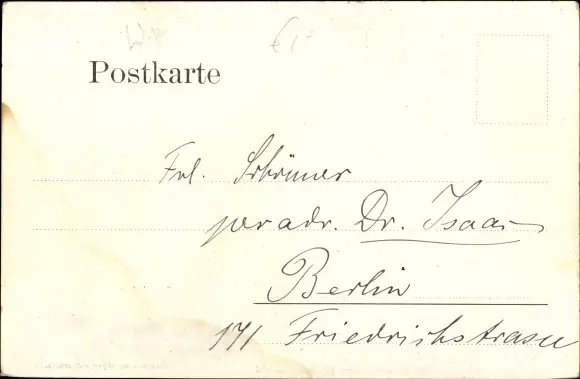 €1,-
Postkarte
Frl.
per adr. Dr. Isaac
Berlin
171 Friedrichstrasse